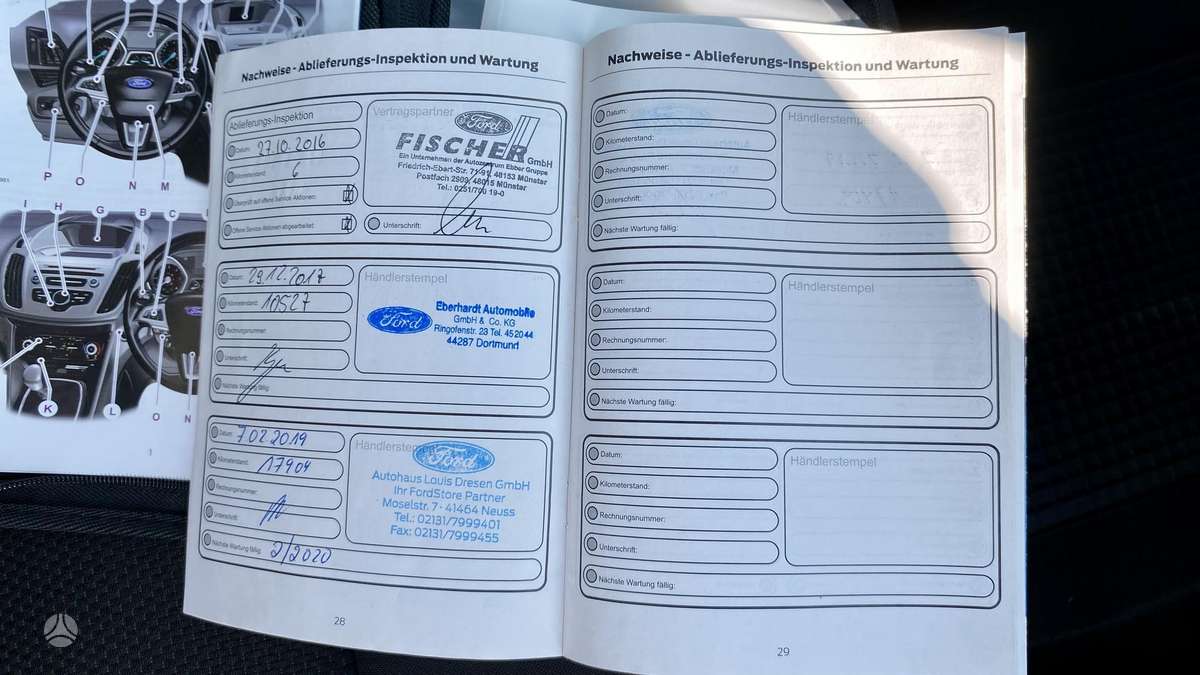 Ford
P O N M
I H G B C
Ford
K L O N
1
Nachweise - Ablieferungs-Inspektion und Wartung
Ablieferungs-Inspektion
Datum: 27.10.2016
Kilometerstand: 6
Überprüft auf offene Service Aktionen:
Offene Service Aktionen abgearbeitet:
Vertragspartner
Ford
FISCHER GmbH
Ein Unternehmen der Autozentrum Ebber Gruppe
Friedrich-Ebert-Str. 71-91, 48153 Münster
Postfach 2909, 48015 Münster
Tel.: 0251/700 19-0
Unterschrift:
Datum: 29.12.2017
Kilometerstand: 10527
Rechnungsnummer:
Unterschrift:
Nächste Wartung fällig:
Händlerstempel
Ford
Eberhardt Automobile
GmbH & Co. KG
Ringofenstr. 23 Tel. 452044
44287 Dortmund
Datum: 7.02.2019
Kilometerstand: 17904
Rechnungsnummer:
Unterschrift:
Nächste Wartung fällig: 2/2020
Händlerstempel
Ford
Autohaus Louis Dresen GmbH
Ihr FordStore Partner
Moselstr. 7 - 41464 Neuss
Tel.: 02131/7999401
Fax: 02131/7999455
28
Nachweise - Ablieferungs-Inspektion und Wartung
Datum:
Kilometerstand:
Rechnungsnummer:
Unterschrift:
Nächste Wartung fällig:
Händlerstempel
Datum:
Kilometerstand:
Rechnungsnummer:
Unterschrift:
Nächste Wartung fällig:
Händlerstempel
Datum:
Kilometerstand:
Rechnungsnummer:
Unterschrift:
Nächste Wartung fällig:
Händlerstempel
29